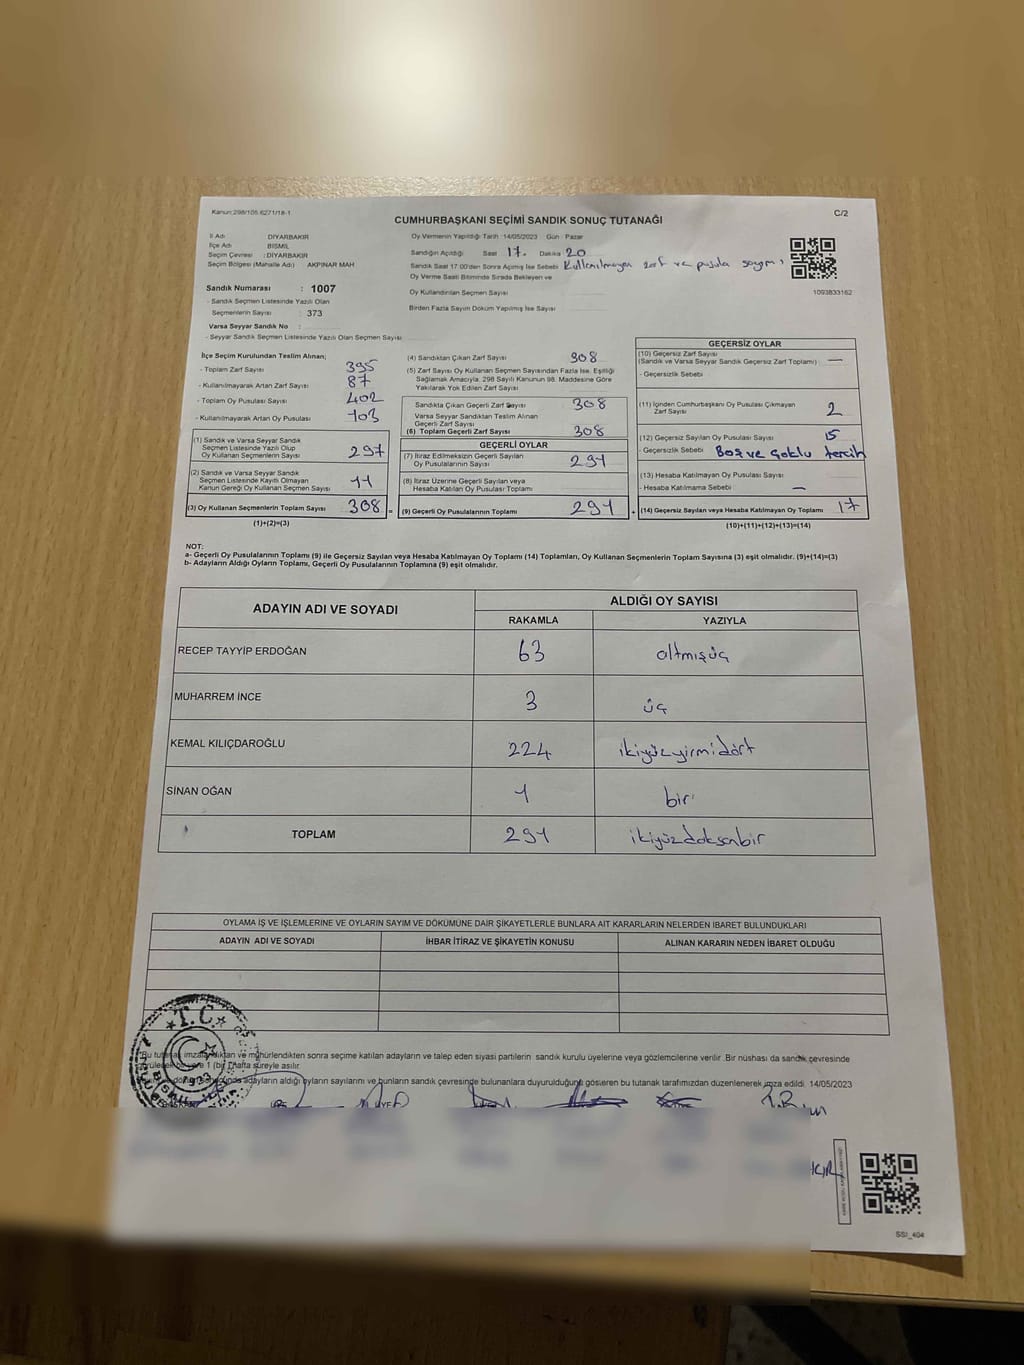 Kanun:298/105 6271/18-1
C/2
CUMHURBAŞKANI SEÇİMİ SANDIK SONUÇ TUTANAĞI
İl Adı DİYARBAKIR
İlçe Adı BİSMİL
Seçim Çevresi : DİYARBAKIR
Seçim Bölgesi (Mahalle Adı) AKPINAR MAH
Sandık Numarası : 1007
- Sandık Seçmen Listesinde Yazılı Olan
Seçmenlerin Sayısı : 373
Varsa Seyyar Sandık No :
- Seyyar Sandık Seçmen Listesinde Yazılı Olan Seçmen Sayısı
Oy Vermenin Yapıldığı Tarih : 14/05/2023 Gün : Pazar
Sandığın Açıldığı Saat 17. Dakika 20
Sandık Saat 17.00'den Sonra Açılmış İse Sebebi Kullanılmayan zarf ve pusula sayımı
Oy Verme Saati Bitiminde Sırada Bekleyen ve
Oy Kullandırılan Seçmen Sayısı
Birden Fazla Sayım Döküm Yapılmış İse Sayısı
1093833162
İlçe Seçim Kurulundan Teslim Alınan;
- Toplam Zarf Sayısı 395
- Kullanılmayarak Artan Zarf Sayısı 87
- Toplam Oy Pusulası Sayısı 402
- Kullanılmayarak Artan Oy Pusulası 103
(1) Sandık ve Varsa Seyyar Sandık
Seçmen Listesinde Yazılı Olup
Oy Kullanan Seçmenlerin Sayısı 297
(2) Sandık ve Varsa Seyyar Sandık
Seçmen Listesinde Kayıtlı Olmayan
Kanun Gereği Oy Kullanan Seçmen Sayısı 11
(3) Oy Kullanan Seçmenlerin Toplam Sayısı 308 =
(1)+(2)=(3)
(4) Sandıktan Çıkan Zarf Sayısı 308
(5) Zarf Sayısı Oy Kullanan Seçmen Sayısından Fazla İse, Eşitliği
Sağlamak Amacıyla, 298 Sayılı Kanunun 98. Maddesine Göre
Yakılarak Yok Edilen Zarf Sayısı
Sandıkta Çıkan Geçerli Zarf Sayısı 308
Varsa Seyyar Sandıktan Teslim Alınan
Geçerli Zarf Sayısı
(6) Toplam Geçerli Zarf Sayısı 308
GEÇERLİ OYLAR
(7) İtiraz Edilmeksizin Geçerli Sayılan
Oy Pusulalarının Sayısı 291
(8) İtiraz Üzerine Geçerli Sayılan veya
Hesaba Katılan Oy Pusulası Toplamı
(9) Geçerli Oy Pusulalarının Toplamı 291 +
GEÇERSİZ OYLAR
(10) Geçersiz Zarf Sayısı
(Sandık ve Varsa Seyyar Sandık Geçersiz Zarf Toplamı) —
- Geçersizlik Sebebi
(11) İçinden Cumhurbaşkanı Oy Pusulası Çıkmayan
Zarf Sayısı 2
(12) Geçersiz Sayılan Oy Pusulası Sayısı 15
- Geçersizlik Sebebi Boş ve Çoklu tercih
(13) Hesaba Katılmayan Oy Pusulası Sayısı
- Hesaba Katılmama Sebebi —
(14) Geçersiz Sayılan veya Hesaba Katılmayan Oy Toplamı 17
(10)+(11)+(12)+(13)=(14)
NOT:
a- Geçerli Oy Pusulalarının Toplamı (9) ile Geçersiz Sayılan veya Hesaba Katılmayan Oy Toplamı (14) Toplamları, Oy Kullanan Seçmenlerin Toplam Sayısına (3) eşit olmalıdır. (9)+(14)=(3)
b- Adayların Aldığı Oyların Toplamı, Geçerli Oy Pusulalarının Toplamına (9) eşit olmalıdır.
ADAYIN ADI VE SOYADI ALDIĞI OY SAYISI
RAKAMLA YAZIYLA
RECEP TAYYİP ERDOĞAN 63 altmışüç
MUHARREM İNCE 3 üç
KEMAL KILIÇDAROĞLU 224 ikiyüzyirmidört
SİNAN OĞAN 1 bir
TOPLAM 291 ikiyüzdoksanbir
OYLAMA İŞ VE İŞLEMLERİNE VE OYLARIN SAYIM VE DÖKÜMÜNE DAİR ŞİKAYETLERLE BUNLARA AİT KARARLARIN NELERDEN İBARET BULUNDUKLARI
ADAYIN ADI VE SOYADI İHBAR İTİRAZ VE ŞİKAYETİN KONUSU ALINAN KARARIN NEDEN İBARET OLDUĞU
T.C
Bu tutanak imzalandıktan ve mühürlendikten sonra seçime katılan adayların ve talep eden siyasi partilerin sandık kurulu üyelerine veya gözlemcilerine verilir. Bir nüshası da sandık çevresinde
bir yere 1 (bir) hafta süreyle asılır.
adayların aldığı oyların sayılarını ve bunların sandık çevresinde bulunanlara duyurulduğunu gösteren bu tutanak tarafımızdan düzenlenerek imza edildi. 14/05/2023
SSI_404